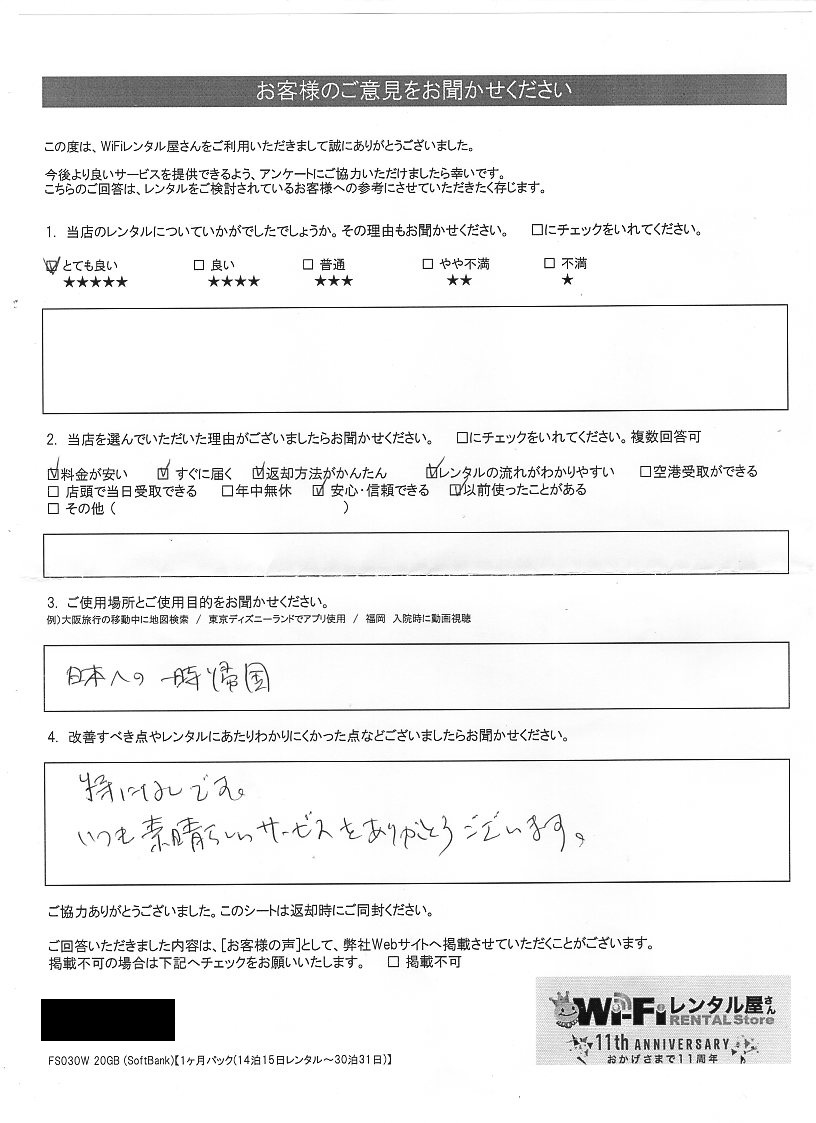 お客様のご意見をお聞かせください
この度は、WiFiレンタル屋さんをご利用いただきまして誠にありがとうございました。
今後より良いサービスを提供できるよう、アンケートにご協力いただけましたら幸いです。
こちらのご回答は、レンタルをご検討されているお客様への参考にさせていただきたく存じます。
1. 当店のレンタルについていかがでしたでしょうか。その理由もお聞かせください。 □にチェックをいれてください。
☑とても良い □ 良い □ 普通 □ やや不満 □ 不満
★★★★★ ★★★★ ★★★ ★★ ★
2. 当店を選んでいただいた理由がございましたらお聞かせください。 □にチェックをいれてください。複数回答可
☑料金が安い ☑ すぐに届く ☑返却方法がかんたん ☑レンタルの流れがわかりやすい □空港受取ができる
□ 店頭で当日受取できる □年中無休 ☑ 安心・信頼できる ☑以前使ったことがある
□ その他 ( )
3. ご使用場所とご使用目的をお聞かせください。
例)大阪旅行の移動中に地図検索 / 東京ディズニーランドでアプリ使用 / 福岡 入院時に動画視聴
日本への一時帰国
4. 改善すべき点やレンタルにあたりわかりにくかった点などございましたらお聞かせください。
特になしです。
いつも素晴らしいサービスをありがとうございます。
ご協力ありがとうございました。このシートは返却時にご同封ください。
ご回答いただきました内容は、[お客様の声]として、弊社Webサイトへ掲載させていただくことがございます。
掲載不可の場合は下記へチェックをお願いいたします。 □ 掲載不可
Wi-Fiレンタル屋さん
RENTAL Store
11th ANNIVERSARY
おかげさまで11周年
FS030W 20GB (SoftBank)【1ヶ月パック(14泊15日レンタル～30泊31日)】